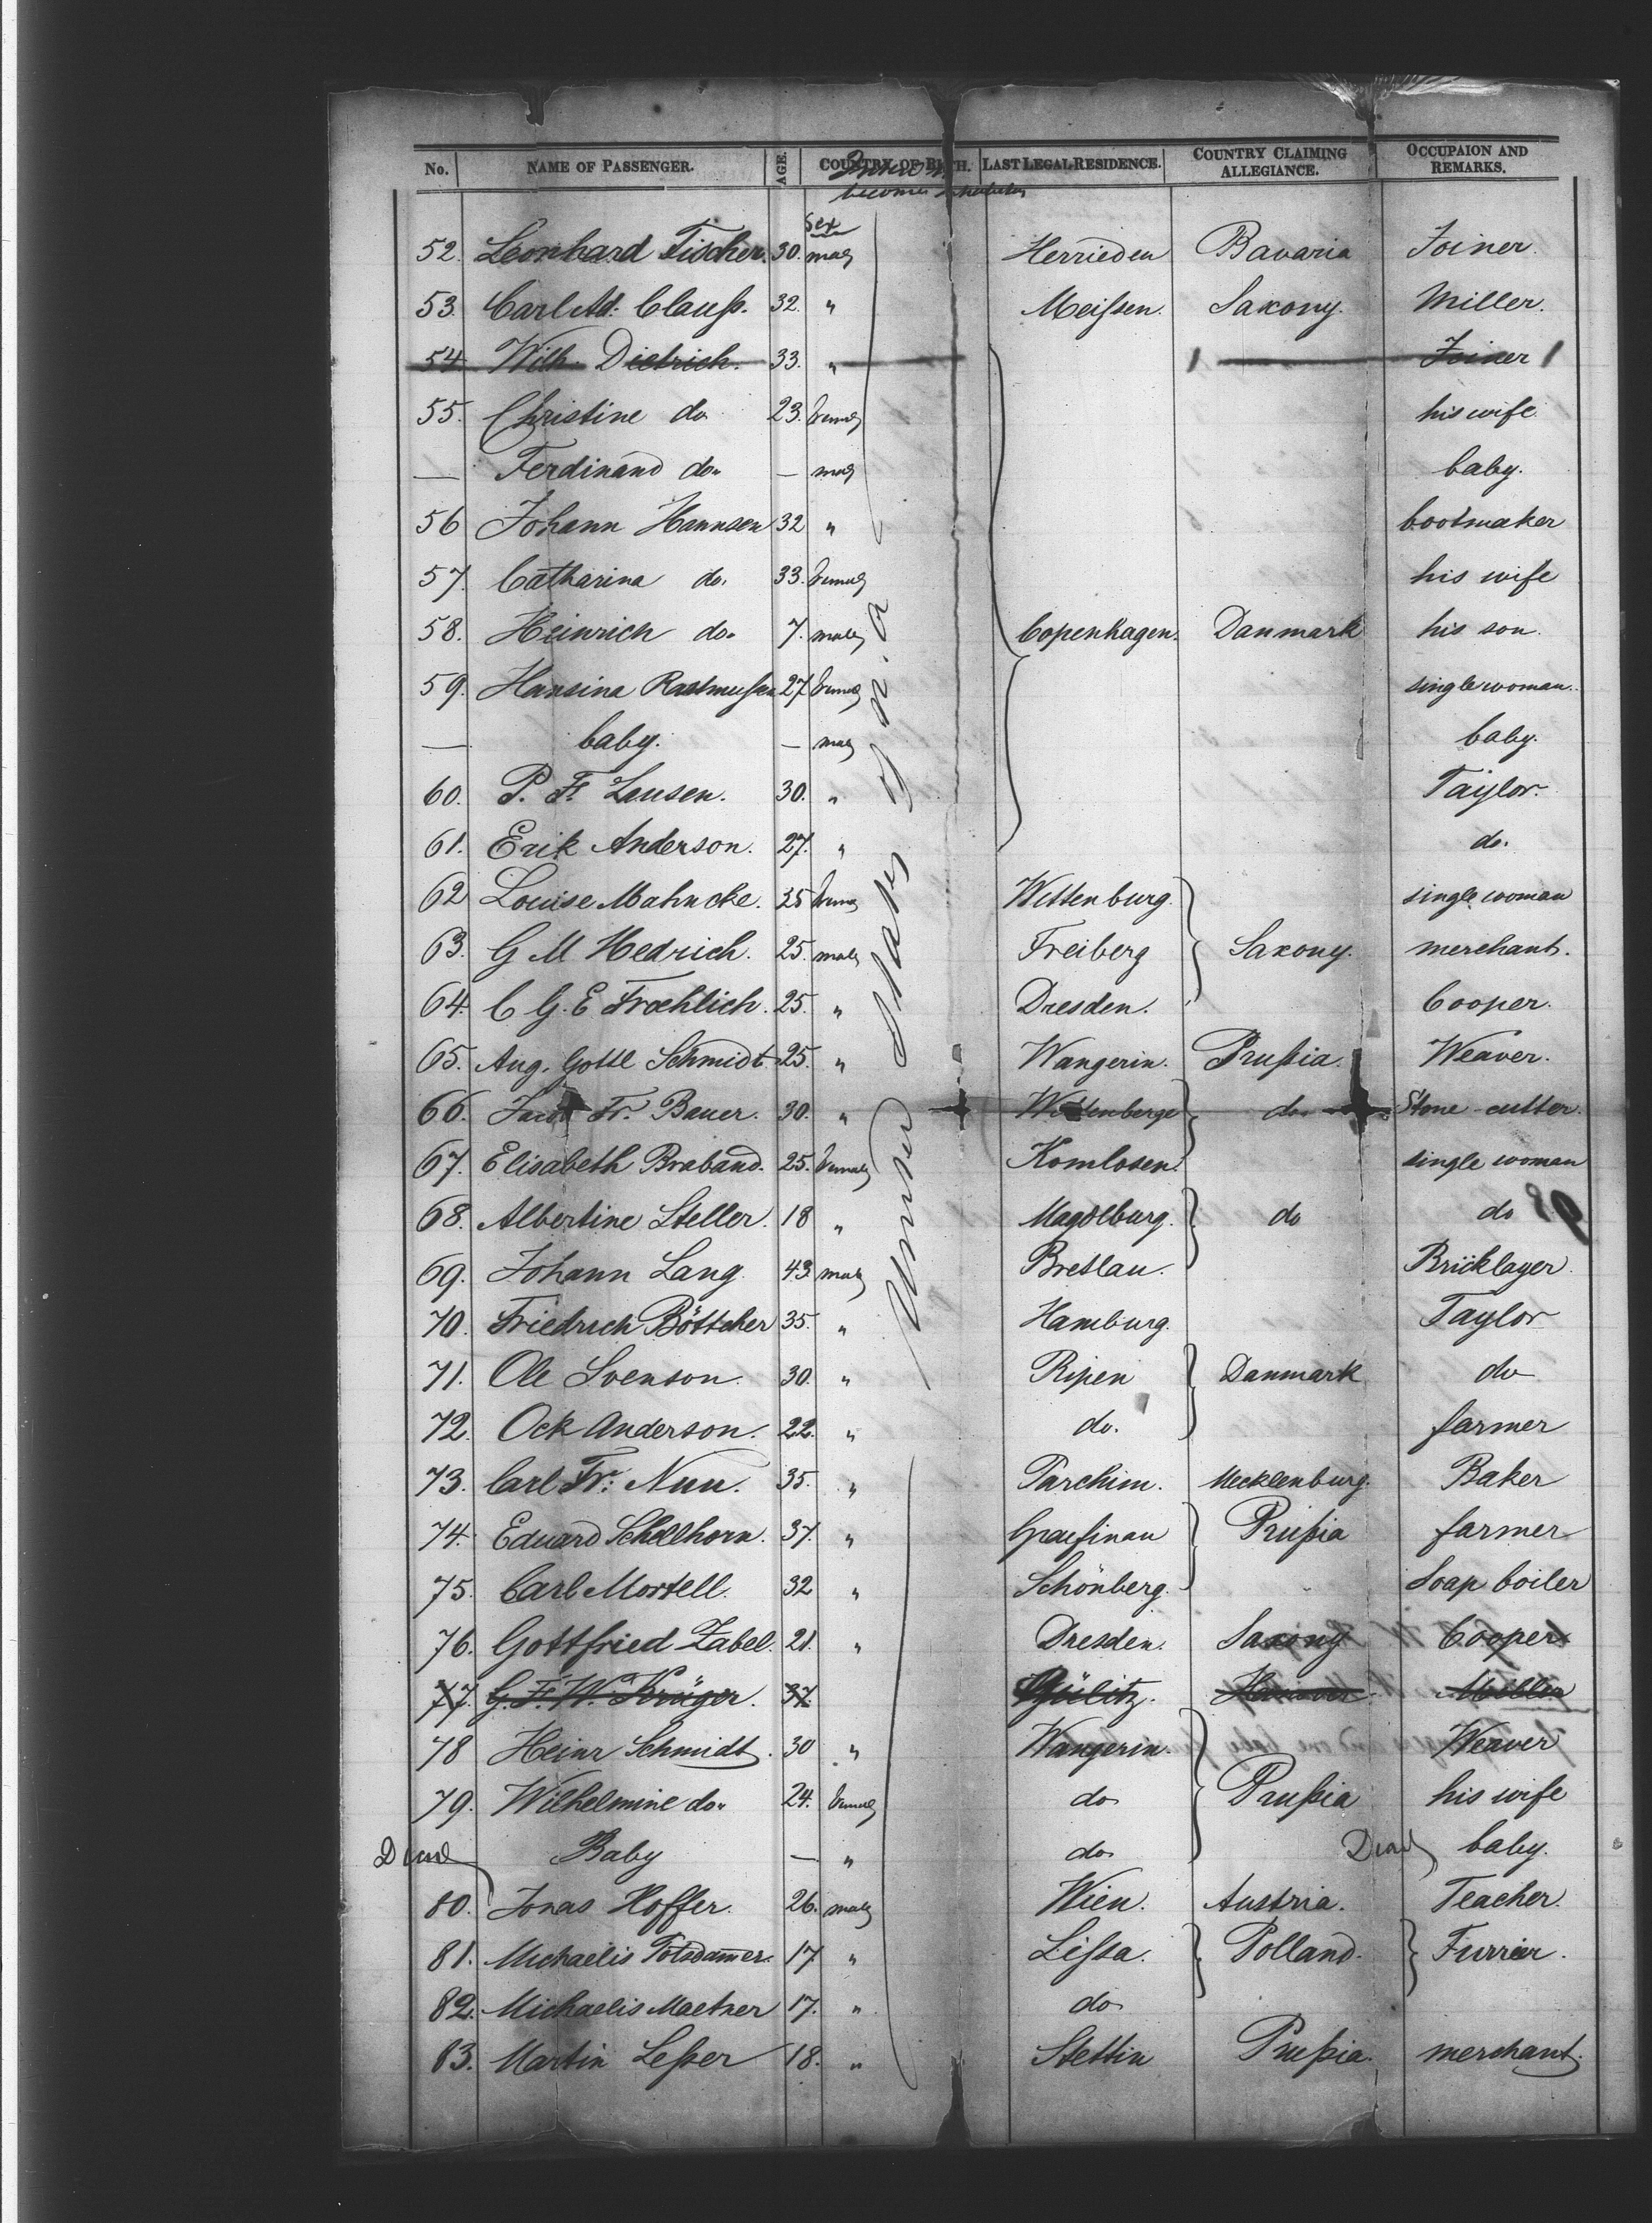 No. NAME OF PASSENGER. AGE. COUNTRY OF BIRTH. LAST LEGAL RESIDENCE. COUNTRY CLAIMING ALLEGIANCE. OCCUPAION AND REMARKS.
Sex
52. Leonhard Fischer. 30. male Herrieden Bavaria Joiner.
53. Carl Ad. Clauß. 32. " Meißen. Saxony. Miller.
54 Wilh. Dietrich. 33. " Joiner
55. Christine do 23. his wife
— Ferdinand do. — male baby.
56 Johann Hannsen 32 " bootmaker
57. Catharina do. 33. his wife
58. Heinrich do. 7. male Copenhagen. Danmark his son.
59. Hansina Rastmußen 27 single woman.
— baby. — male baby.
60. P. F. Lausen. 30. " Taylor.
61. Erik Anderson. 27. " do.
62 Louise Mahncke. 25 Wittenburg. single woman
63. G M Hedrich. 25. male Freiberg Saxony. merchant.
64. C G. E Froehlich. 25. " Dresden. Cooper.
65. Aug. Gottl Schmidt 25. " Wangerin. Prußia. Weaver.
66. Jacob Fr. Bauer. 30. " Wittenberge do. Stone-cutter.
67. Elisabeth Braband. 25. Komlosen. single woman
68. Albertine Steller. 18 " Magdlburg. do do
69. Johann Lang. 43. male Breslau. Bricklayer.
70. Friedrich Böttcher 35. " Hamburg. Taylor
71. Ole Svenson. 30. " Ripen Danmark do
72. Ock Anderson. 22. " do. farmer
73. Carl Fr. Nuu. 35. " Parchim. Mecklenburg. Baker
74. Eduard Schellhorn. 37. " Prußia farmer
75. Carl Mortell. 32 " Schönberg. Soap boiler
76. Gottfried Zabel. 21. " Dresden. Saxony Cooper
77. G. F. W. Krüger. 37. Gülitz. Hannover. Miller
78 Heinr Schmidt. 30 " Wangerin. Weaver
79. Wilhelmine do. 24. do Prußia his wife
Dead Baby — " do. Dead baby.
80. Jonas Hoffer. 26. male Wien. Austria. Teacher.
81. Michaelis Potsdammer. 17 " Lißa. Polland. Furrier.
82. Michaelis Maetzer 17. " do
83. Martin Leßer 18. " Stettin Prußia. merchant.
United States of N. A